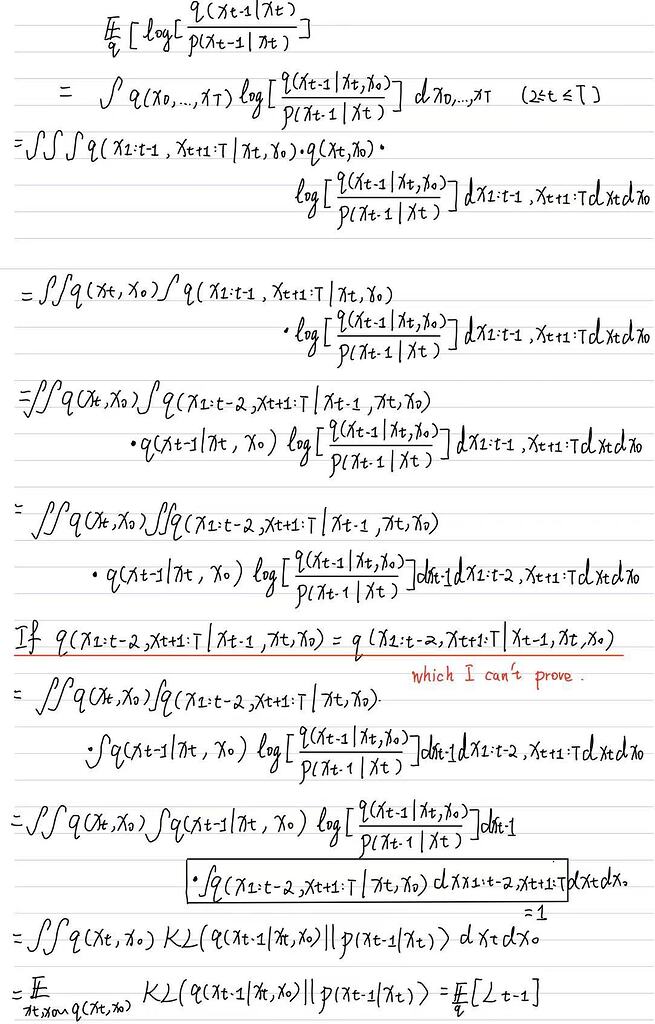 𝔼_q [ log[ q(x_{t-1}|x_t) / p(x_{t-1}|x_t) ]
= ∫ q(x_0,...,x_T) log[ q(x_{t-1}|x_t,x_0) / p(x_{t-1}|x_t) ] dx_0,...,x_T (2≤t≤T)
=∫∫∫ q(x_{1:t-1}, x_{t+1:T}|x_t,x_0)·q(x_t,x_0)·
log[ q(x_{t-1}|x_t,x_0) / p(x_{t-1}|x_t) ] dx_{1:t-1},x_{t+1:T}dx_tdx_0
=∫∫q(x_t,x_0)∫q(x_{1:t-1}, x_{t+1:T}|x_t,x_0)
·log[ q(x_{t-1}|x_t,x_0) / p(x_{t-1}|x_t) ] dx_{1:t-1},x_{t+1:T}dx_tdx_0
=∫∫q(x_t,x_0)∫q(x_{1:t-2},x_{t+1:T}|x_{t-1},x_t,x_0)
·q(x_{t-1}|x_t, x_0) log[ q(x_{t-1}|x_t,x_0) / p(x_{t-1}|x_t) ] dx_{1:t-1},x_{t+1:T}dx_tdx_0
= ∫∫q(x_t,x_0)∫∫q(x_{1:t-2},x_{t+1:T}|x_{t-1},x_t,x_0)
·q(x_{t-1}|x_t, x_0) log[ q(x_{t-1}|x_t,x_0) / p(x_{t-1}|x_t) ]dx_{t-1}dx_{1:t-2},x_{t+1:T}dx_tdx_0
If q(x_{1:t-2},x_{t+1:T}|x_{t-1},x_t,x_0) = q(x_{1:t-2},x_{t+1:T}|x_{t-1},x_t,x_0)
which I can't prove.
= ∫∫q(x_t,x_0)∫q(x_{1:t-2},x_{t+1:T}|x_t,x_0)·
·∫q(x_{t-1}|x_t, x_0) log[ q(x_{t-1}|x_t,x_0) / p(x_{t-1}|x_t) ]dx_{t-1}dx_{1:t-2},x_{t+1:T}dx_tdx_0
=∫∫q(x_t,x_0)∫q(x_{t-1}|x_t, x_0) log[ q(x_{t-1}|x_t,x_0) / p(x_{t-1}|x_t) ]dx_{t-1}
·∫q(x_{1:t-2},x_{t+1:T}|x_t,x_0)dxx_{1:t-2},x_{t+1:T}dx_tdx_0
=1
=∫∫q(x_t,x_0) KL(q(x_{t-1}|x_t,x_0)||p(x_{t-1}|x_t)) dx_tdx_0
=𝔼_{x_t,x_0~q(x_t,x_0)} KL(q(x_{t-1}|x_t,x_0)||p(x_{t-1}|x_t)) = 𝔼_q[L_{t-1}]